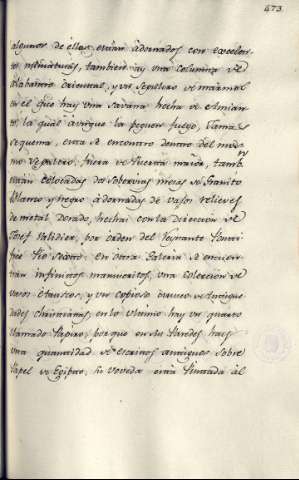 473.
algunos de ellos están adornados con excelen-
tes miniaturas, tambien ay una columna de
Alabastro oriental, y un Sepulcro de marmol
en el que hay una Savana hecha de Amian-
to, la qual aunque la peguen fuego, jamas
se quema, esta se encontro dentro del mis-
mo Sepulcro, fuera de Puerta maior, tambn
están colocadas dos sobervias mesas de Granito
blanco y negro adornadas de vajos relieves
de metal dorado, hechas con la direccion de
Josef Validier, por orden del Reynante Ponti-
fice Pio Sexto. en otra Galeria se encuen-
tran infinitos manuscritos, una coleccion de
vasos Etruscos, y un copioso museo de Antigue-
dades christianas, en lo ultimo hay un quarto
llamado Papiro, porque en sus Paredes hay
una quantidad de escritos antiguos sobre
Papel de Egipto, su voveda está pintada al